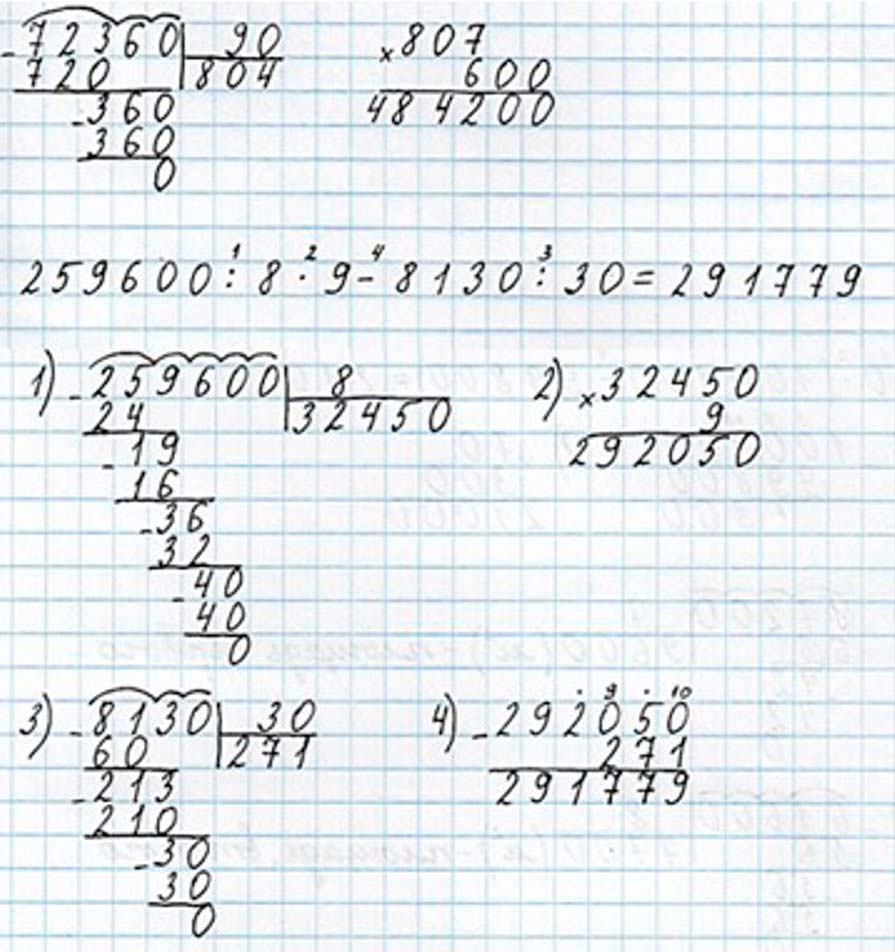 -72360 90 ×807
720 804 600
-360 484200
360
0
259600 : 8 · 9 - 8130 : 30 = 291779
1 2 4 3
1) -259600 8 2) ×32450
24 32450 9
-19 292050
16
-36
32
-40
40
0
3) -8130 30 4) -292050
60 271 271
-213 291779
210
-30
30
0
. 9 . 10